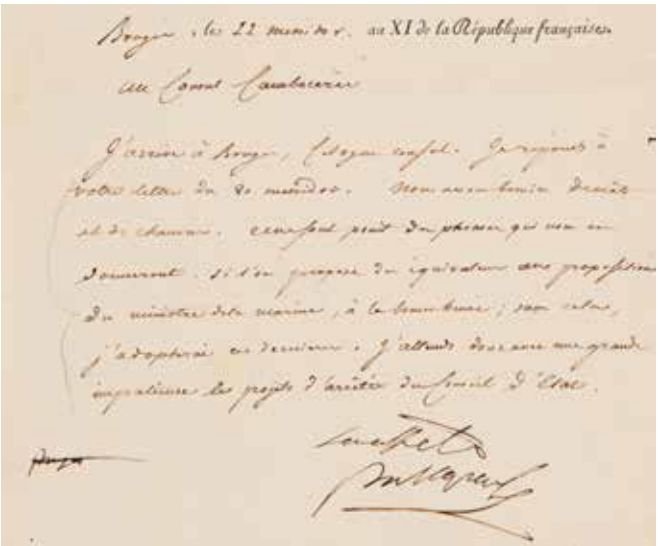 Bruges, le 22 messidor, an XI de la République française.
Au Consul Cambacérès
J'arrive à Bruges, Citoyen consul. Je réponds à
votre lettre du 20 messidor. Nous avons besoin
et de chanvre. ce ne sont point des phrases qui nous en
donneront. si l'on propose des équivalens aux propositions
du ministre de la marine, à la bonne heure; sans cela,
j'adopterai ces dernières. J'attends donc avec une grande
impatience les projets d'arrêtés du Conseil d'Etat.
Bruges